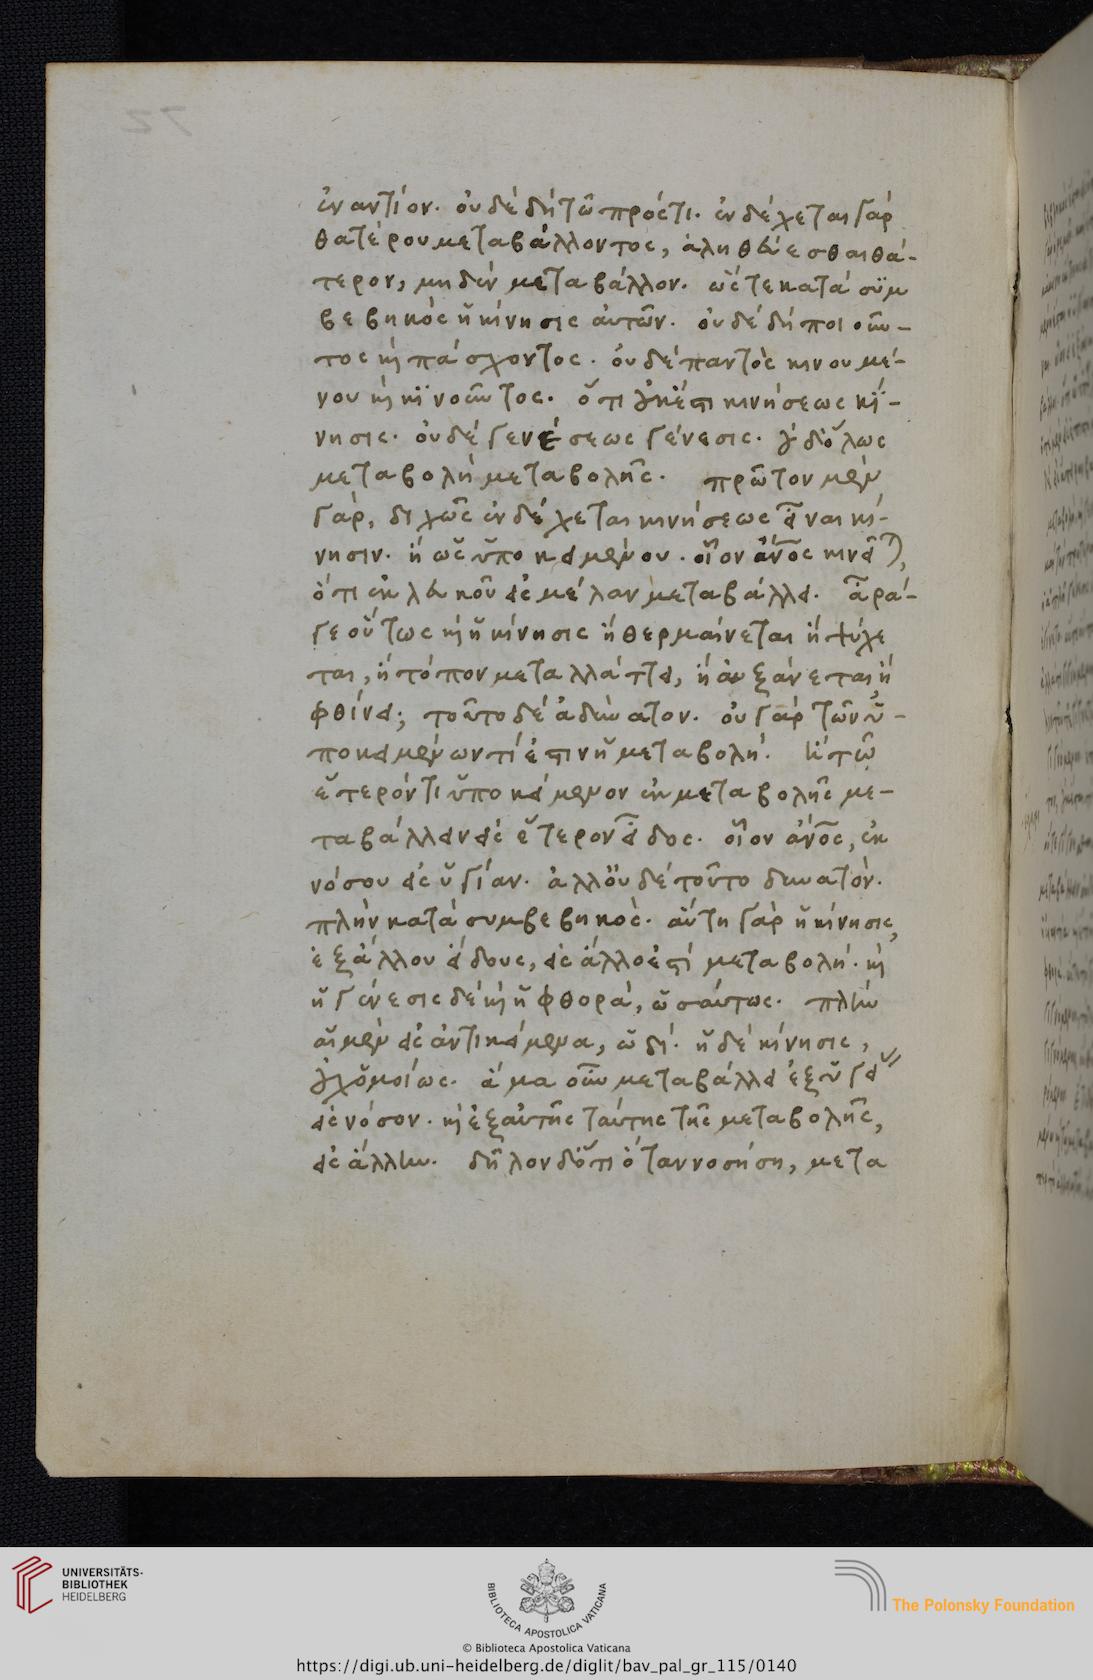 ἐναντίον. οὐδὲ δὴ τῶ πρόςτι. ἐνδέχεται γὰρ
θατέρου μεταβάλλοντος, ἀληθεύεσθαι θά-
τερον, μηδὲν μεταβάλλον. ὥςτε κατὰ συμ
βεβηκὸς ἡ κίνησις αὐτῶν. οὐδὲ δὴ ποιοῦν-
τος καὶ πάσχοντος. οὐδὲ παντὸς κινουμέ-
νου καὶ κινοῦντος. ὅτι οὐκ ἔστι κινήσεως κί-
νησις. οὐδὲ γενέσεως γένεσις. οὐδ' ὅλως
μεταβολὴ μεταβολῆς. πρῶτον μὲν
γὰρ, διχῶς ἐνδέχεται κινήσεως εἶναι κί-
νησιν. ἢ ὡς ὑποκειμένου. οἷον ἄνος κινεῖται,
ὅτι ἐκ λευκοῦ εἰς μέλαν μεταβάλλει. ἆρά-
γε οὕτως καὶ ἡ κίνησις ἢ θερμαίνεται ἢ ψύχε
ται, ἢ τόπον μεταλλάττει, ἢ αὐξάνεται ἢ
φθίνει; τοῦτο δὲ ἀδύνατον. οὐ γὰρ τῶν ὑ-
ποκειμένων τί ἐστιν ἡ μεταβολή. ἢ τῶ
ἕτερόν τι ὑποκείμενον ἐκ μεταβολῆς με-
ταβάλλειν εἰς ἕτερον εἶδος. οἷον ἄνος, ἐκ
νόσου εἰς ὑγίαν. ἀλλ' οὐδὲ τοῦτο δυνατὸν.
πλὴν κατὰ συμβεβηκὸς. αὕτη γὰρ ἡ κίνησις,
ἐξ ἄλλου εἴδους, εἰς ἄλλο ἐστὶ μεταβολή. καὶ
ἡ γένεσις δὲ καὶ ἡ φθορὰ, ὡσαύτως. πλὴν
αἱ μὲν εἰς ἀντικείμενα, ὡδί. ἡ δὲ κίνησις,
οὐχ ὁμοίως. ἅμα οὖν μεταβάλλει ἐξ ὑγείας
εἰς νόσον. καὶ ἐξ αὐτῆς ταύτης τῆς μεταβολῆς,
εἰς ἄλλην. δῆλον δ' ὅτι ὅταν νοσήση, μετα
UNIVERSITÄTS-
BIBLIOTHEK
HEIDELBERG
BIBLIOTECA APOSTOLICA VATICANA
The Polonsky Foundation
© Biblioteca Apostolica Vaticana
https://digi.ub.uni-heidelberg.de/diglit/bav_pal_gr_115/0140